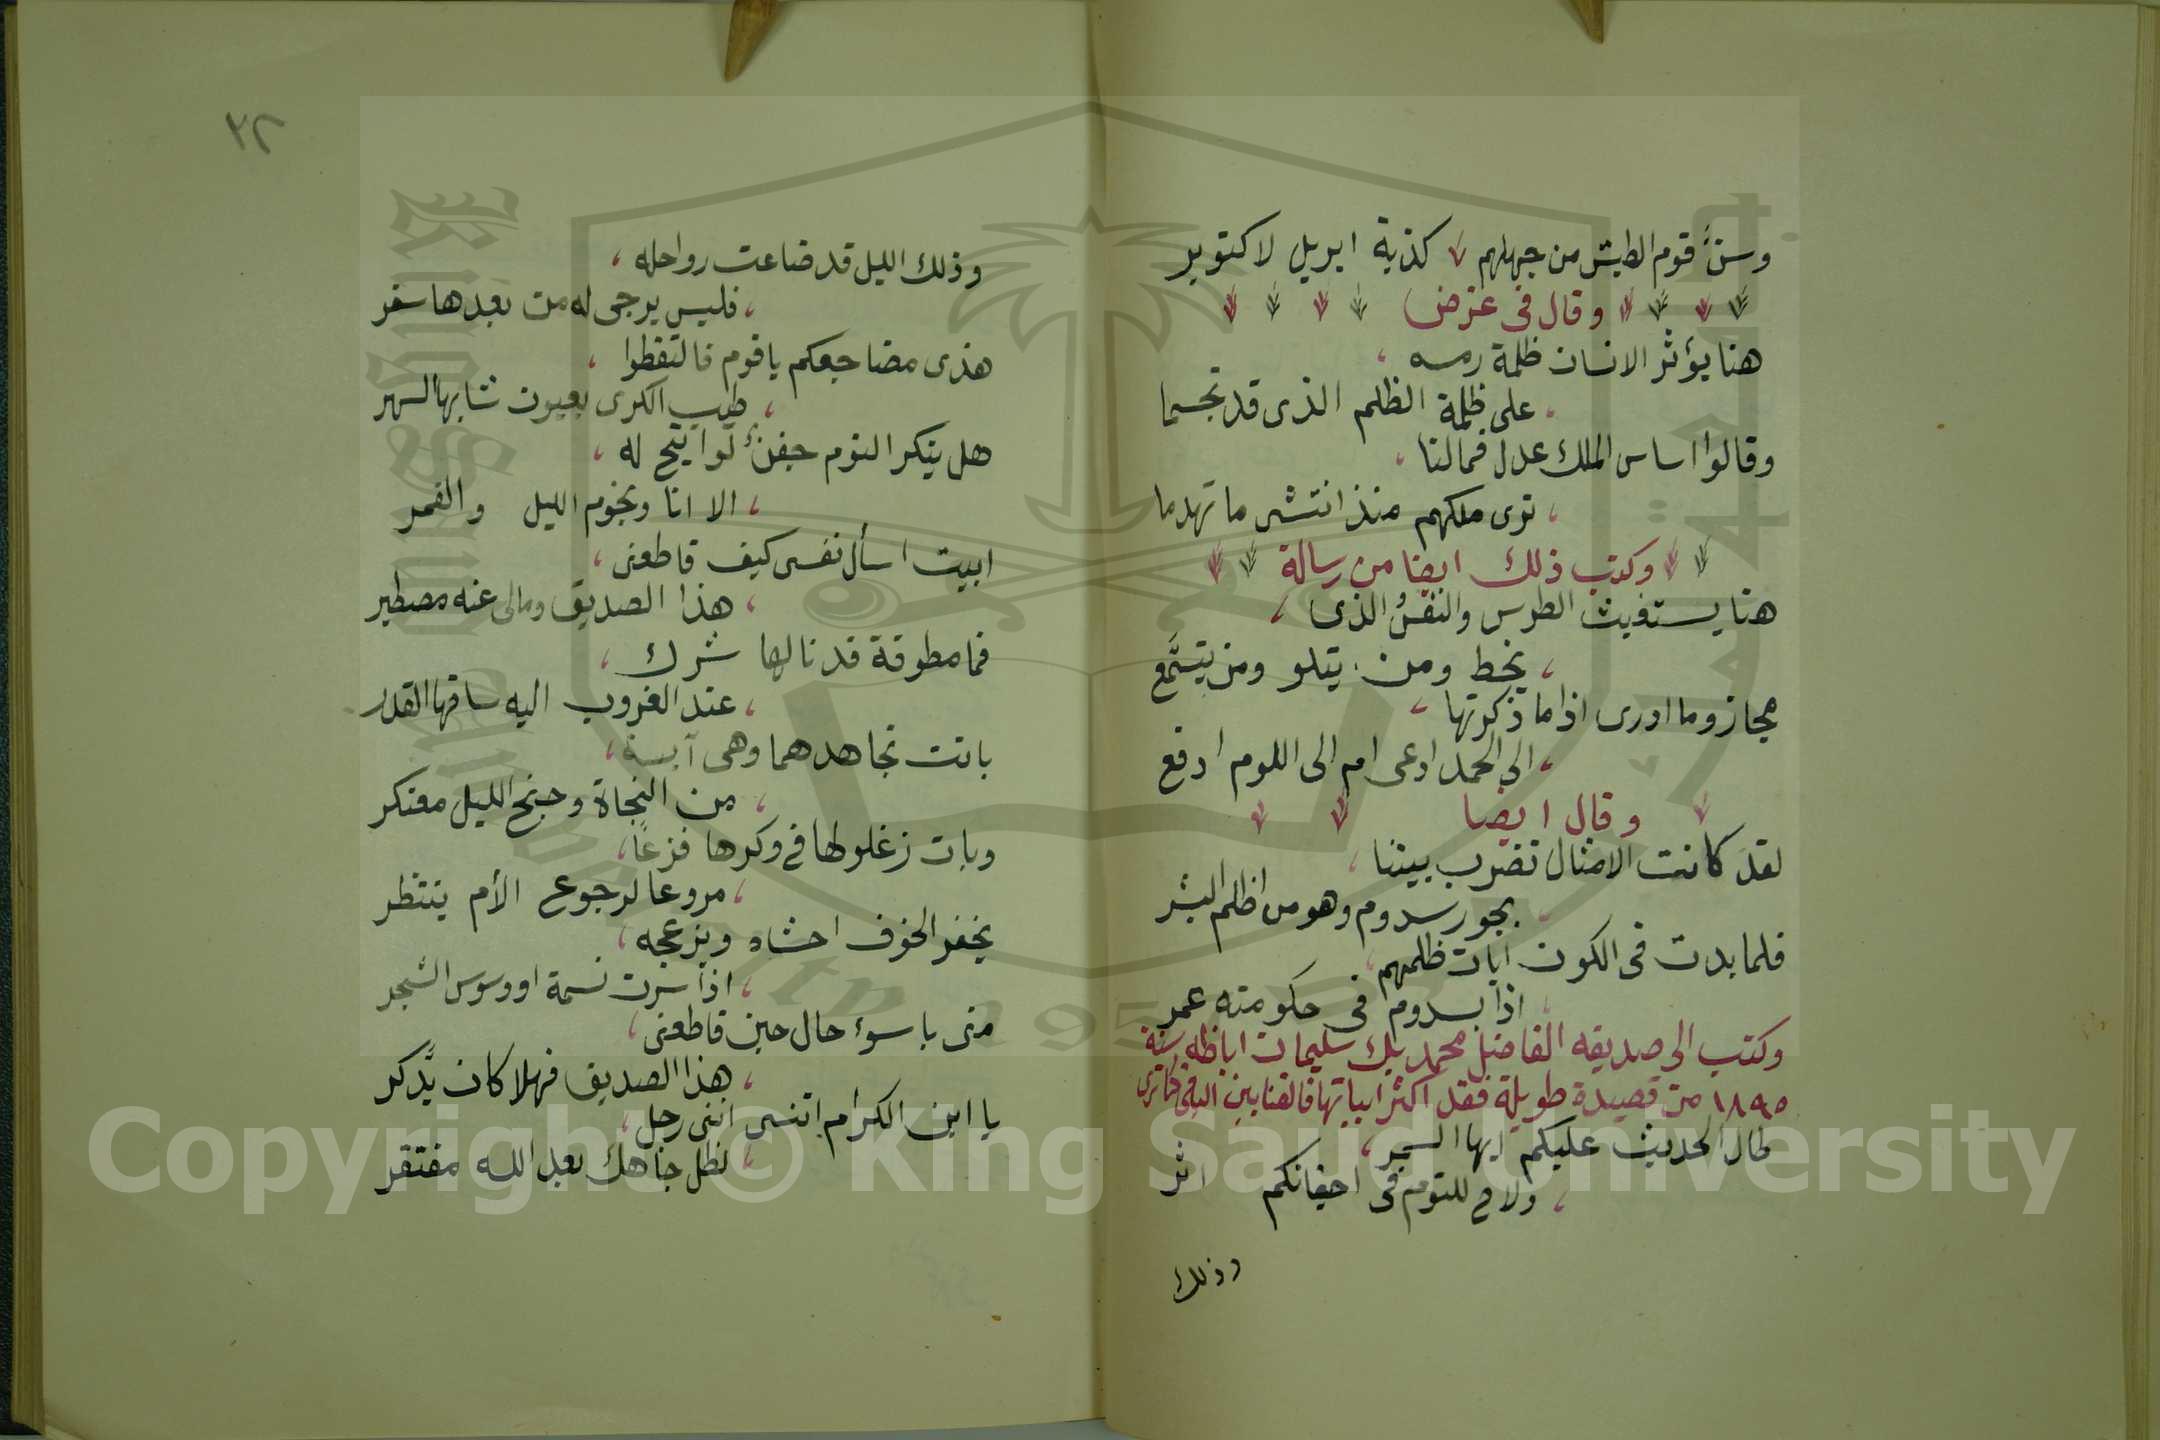 وسنَّ قوم الطيش من جهلهم كذبة ابريل لاكتوبر
وقال فى غرض
هنا يؤثر الانسان ظلمة رمسه
على ظلمة الظلم الذى قد تجسما
وقالوا اساس الملك عدل فمالنا
نرى ملكهم منذ انتشى ما تهدما
وكتب ذلك ايضا من رسالة
هنا يستغيث الطرس والنقسُ الذى
يخط ومن يتلو ومن يتسَّمع
مجاز وما ادرى اذا ما ذكرتها
الى الحمد ادعى ام الى اللوم ادفع
وقال ايضا
لقد كانت الامثال تضرب بيننا
بجور سدوم وهو من اظلم البشر
فلما بدت فى الكون آيات ظلمهم
اذا بسدوم فى حكومته عمر
وكتب الى صديقه الفاضل محمد بك سليمان اباظه سنة
١٨٩٥ من قصيدة طويلة فقد اكثر ابياتها فالفنا بين الباقى كما ترى
طال الحديث عليكم ايها السمر
ولاح للنوم فى اجفانكم اثر
وذلك
٢٢
وذلك الليل قد ضاعت رواحله
فليس يرجى له من بعدها سفر
هذى مضاجعكم ياقوم فالتقطوا
طيب الكرى بعيون شابها السهر
هل ينكر النوم جفنٌ لو اتيح له
الا انا ونجوم الليل والقمر
ابيت اسأل نفسى كيف قاطعنى
هذا الصديق ومالى عنه مصطبر
فما مطوقة قد نالها شرك
عند الغروب اليه ساقها القدر
باتت تجاهد هما وهى آيسة
من النجاة وجنح الليل معتكر
وبات زغلولها فى وكرها فزعًا
مروعا لرجوع الأم ينتظر
يحفز الخوف احشاه ويزعجه
اذا سرت نسمة او وسوس الشجر
منى باسوء حال حين قاطعنى
هذا الصديق فهلا كان يدَّكر
يا ابن الكرام اتنسى اننى رجل
لظل جاهك بعد الله مفتقر
Copyright © King Saud University